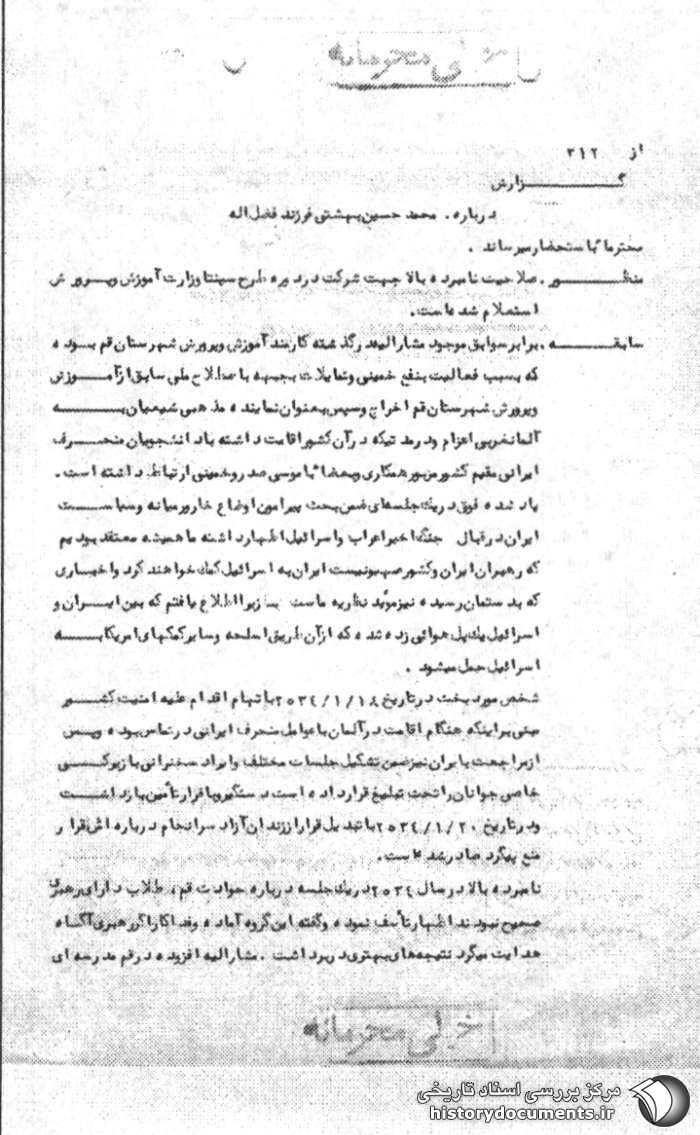 خیلی محرمانه
از ۳۱۲
گزارش
درباره . محمد حسین بهشتی فرزند فضل اله
محترما" باستحضار میرساند .
منظور . صلاحیت نامبرده بالا جهت شرکت در دوره طرح سینتا وزارت آموزش و پرورش
استعلام شده است .
سابقه . برابر سوابق موجود مشارالیه در گذشته کارمند آموزش و پرورش شهرستان قم بوده
که بسبب فعالیت بنفع خمینی و تمایلات بجبهه باصطلاح ملی سابق از آموزش
و پرورش شهرستان قم اخراج و سپس بعنوان نماینده مذهبی شیعیان به
آلمان غربی اعزام و در مدتیکه در آن کشور اقامت داشته با دانشجویان منحرف
ایرانی مقیم کشور مزبور همکاری و بعضا" با موسی صدر و خمینی ارتباط داشته است .
یاد شده فوق در یک جلسه‌ای ضمن بحث پیرامون اوضاع خاورمیانه و سیاست
ایران در قبال جنگ اخیر اعراب و اسرائیل اظهار داشته ما همیشه معتقد بودیم
که رهبران ایران و کشور صهیونیست ایران به اسرائیل کمک خواهند کرد و اخباری
که بدستمان رسیده نیز موید نظریه ماست زیرا اطلاع یافتم که بین ایران و
اسرائیل یک پل هوائی زده شده که از آن طریق اسلحه و سایر کمکهای امریکا به
اسرائیل حمل میشود .
شخص مورد بحث در تاریخ ۲۵۳۴/۱/۱۸ با تهام اقدام علیه امنیت کشور
مبنی بر اینکه هنگام اقامت در آلمان با عوامل منحرف ایرانی در تماس بوده و پس
از مراجعت بایران نیز ضمن تشکیل جلسات مختلف و ایراد سخنرانی با زیرکی
خاص جوانان را تحت تبلیغ قرار داده است دستگیر و با قرار تأمین بازداشت
و در تاریخ ۲۵۳۴/۱/۲۰ با تبدیل قرار از زندان آزاد سرانجام درباره اش قرار
منع پیگرد صادر شده است .
نامبرده بالا در سال ۲۵۳۴ در یک جلسه درباره حوادث قم ، طلاب دارای رهبری
صحیح نبودند اظهار تأسف نموده و گفته این گروه آماده و فداکار اگر رهبری آگاه
هدایت میکرد نتیجه‌های بهتری در بر داشت . مشارالیه افزوده در قم مدرسه ای
خیلی محرمانه
مرکز بررسی اسناد تاریخی
historydocuments.ir